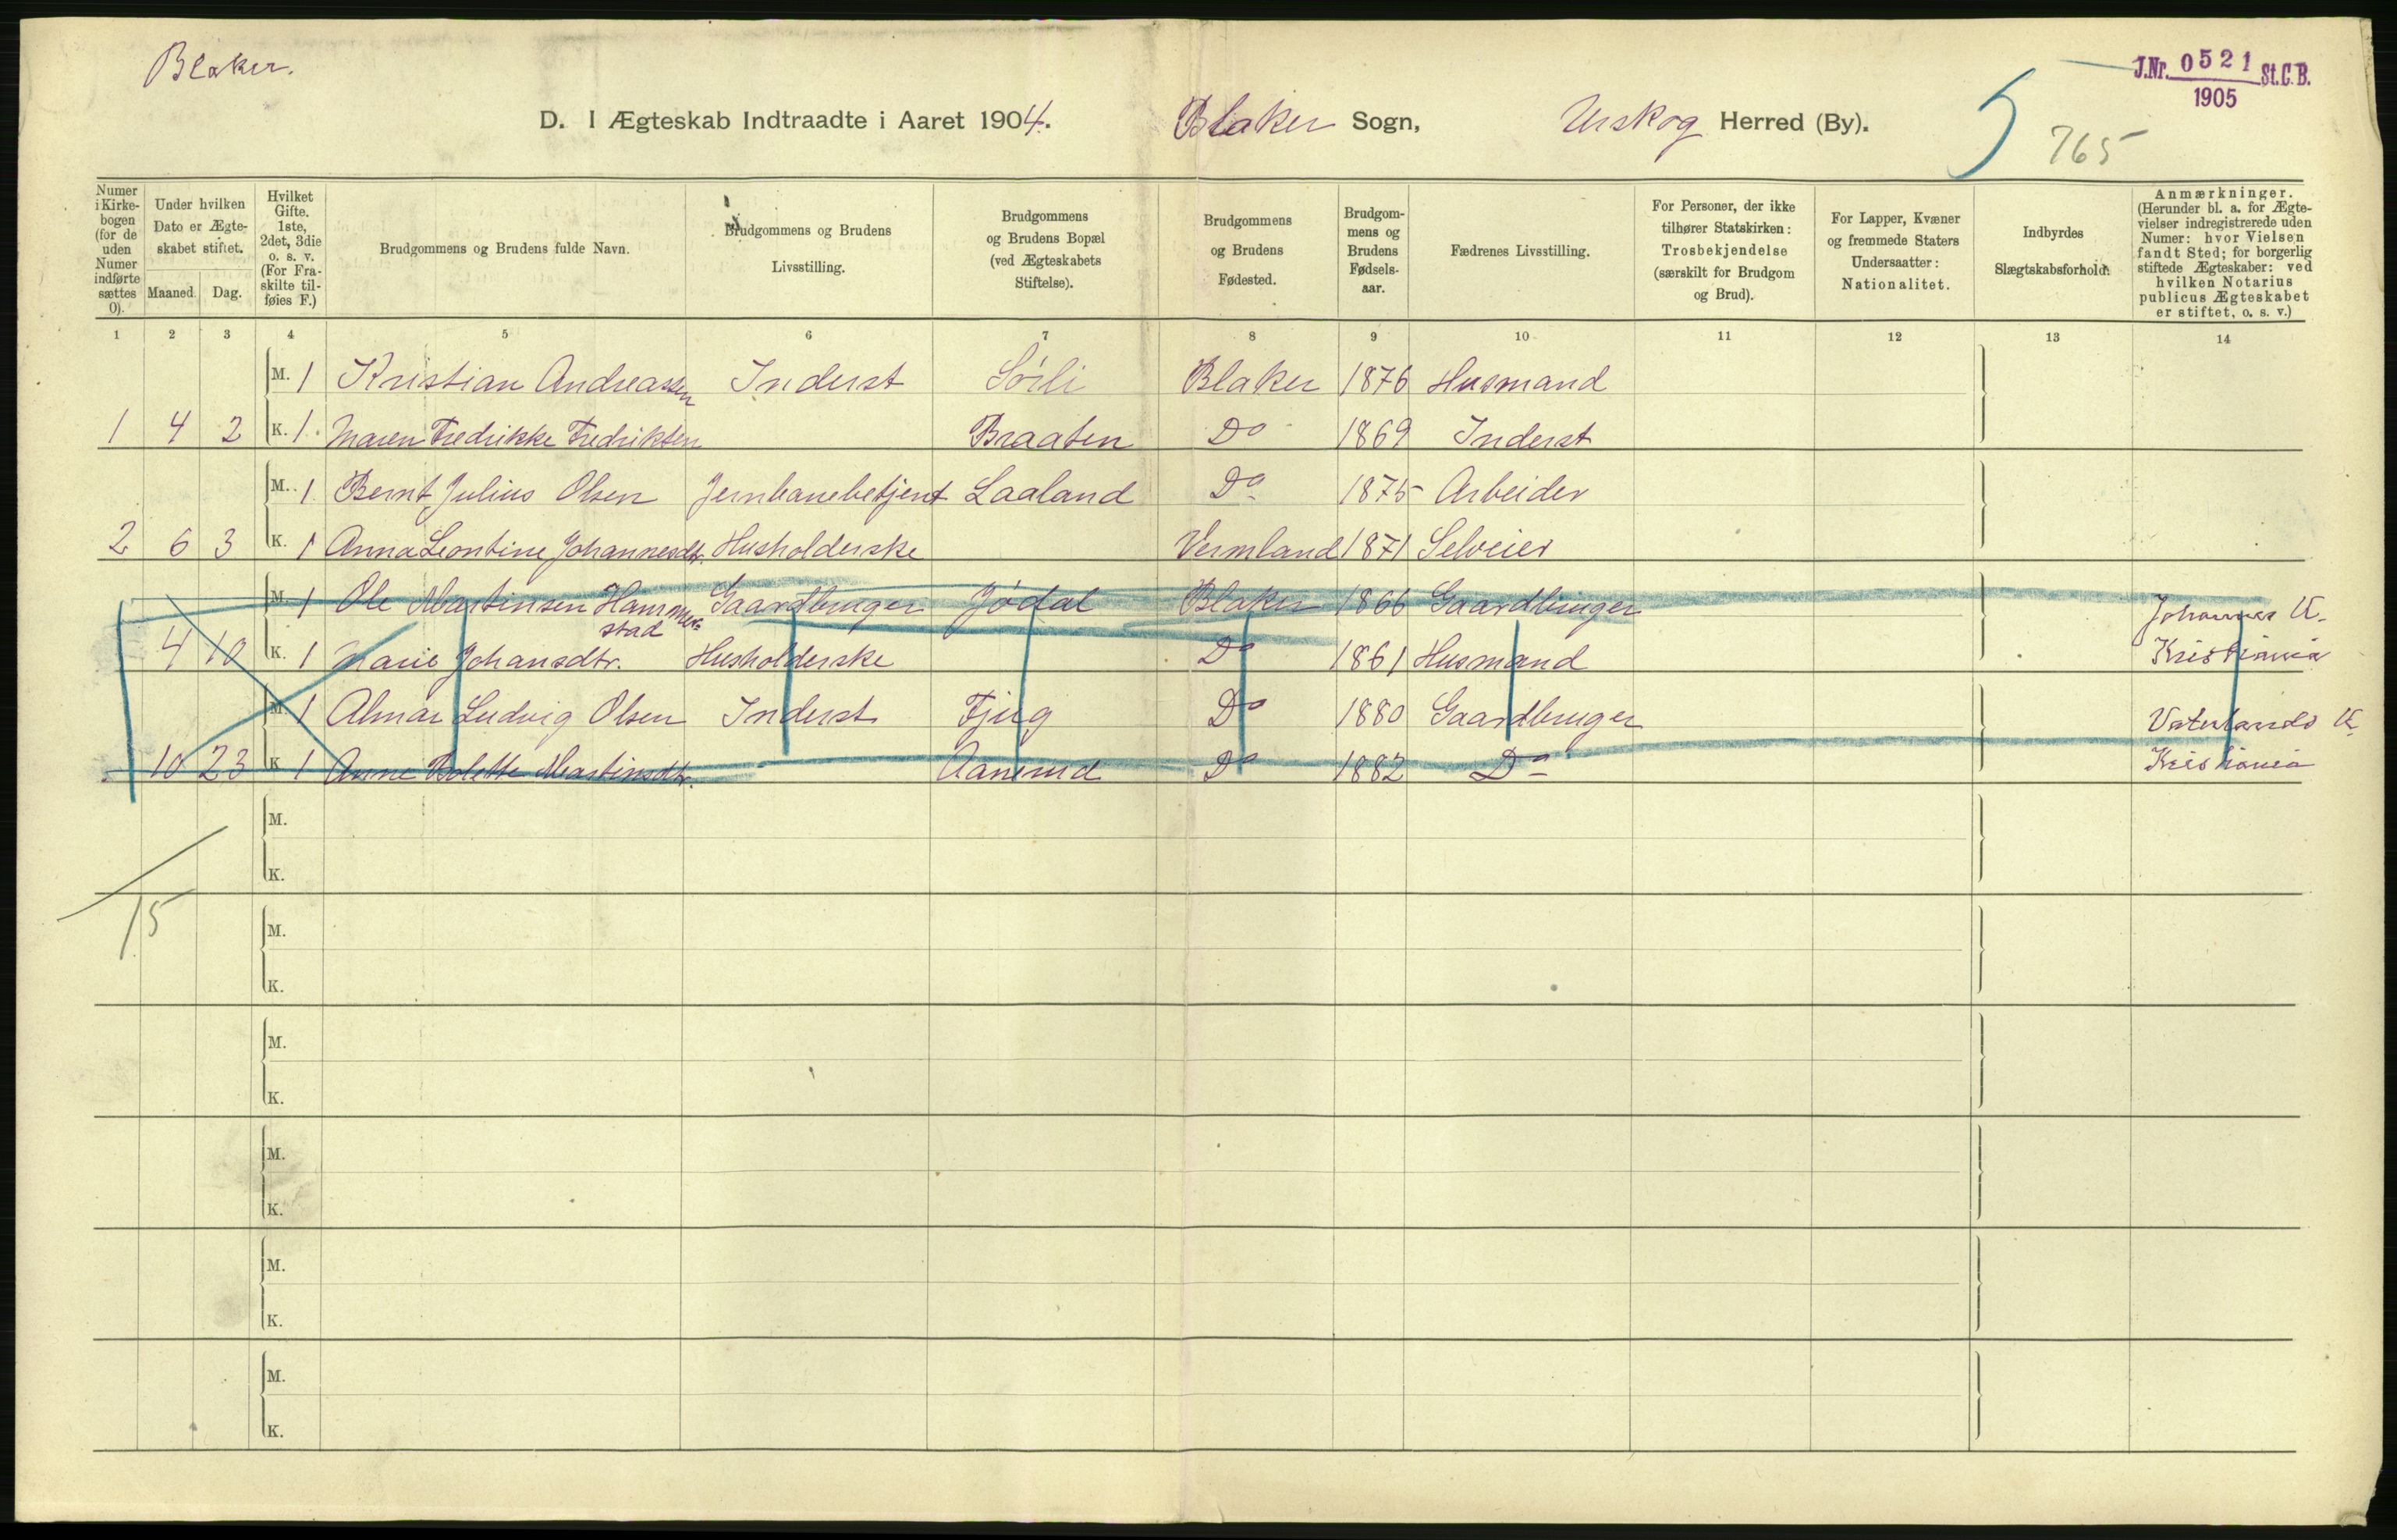 Blaker.
J.Nr. 0521 St.C.B.
1905
D. I Ægteskab Indtraadte i Aaret 1904. Blaker Sogn, Urskog Herred (By).
5
765
Numer i Kirkebogen (for de uden Numer indførte sættes 0).
Under hvilken Dato er Ægteskabet stiftet.
Maaned. Dag.
Hvilket Gifte. 1ste, 2det, 3die o. s. v. (For Fraskilte tilføies F.)
Brudgommens og Brudens fulde Navn.
Brudgommens og Brudens Livsstilling.
Brudgommens og Brudens Bopæl (ved Ægteskabets Stiftelse).
Brudgommens og Brudens Fødested.
Brudgommens og Brudens Fødselsaar.
Fædrenes Livsstilling.
For Personer, der ikke tilhører Statskirken: Trosbekjendelse (særskilt for Brudgom og Brud).
For Lapper, Kvæner og fremmede Staters Undersaatter: Nationalitet.
Indbyrdes Slægtskabsforhold.
Anmærkninger. (Herunder bl. a. for Ægtevielser indregistrerede uden Numer: hvor Vielsen fandt Sted; for borgerlig stiftede Ægteskaber: ved hvilken Notarius publicus Ægteskabet er stiftet, o. s. v.)
1 2 3 4 5 6 7 8 9 10 11 12 13 14
M. 1 Kristian Andreassen Inderst Sörli Blaker 1876 Husmand
1 4 2 K. 1. Maren Fredrikke Fredriksen Braaten Do 1869 Inderst
M. 1 Bernt Julius Olsen Jernbanebetjent Laaland Do 1875 Arbeider
2 6 3 K. 1 Anna Leontine Johannesdtr. Husholderske Vermland 1871 Selveier
M. 1 Ole Martinsen Hammerstad Gaardbruger Jödal Blaker 1866 Gaardbruger Johannes K.
4 10 K. 1 Marie Johansdtr. Husholderske Do 1861 Husmand Kristiania
M. 1 Almar Ludvig Olsen Inderst Fjug Do 1880 Gaardbruger Vaterlands K
10 23 K 1 Anne Bolette Martinsdtr. Aanerud Do 1882 Do Kristiania
M.
K.
15
M.
K.
M.
K.
M.
K.
M.
K.
M.
K.